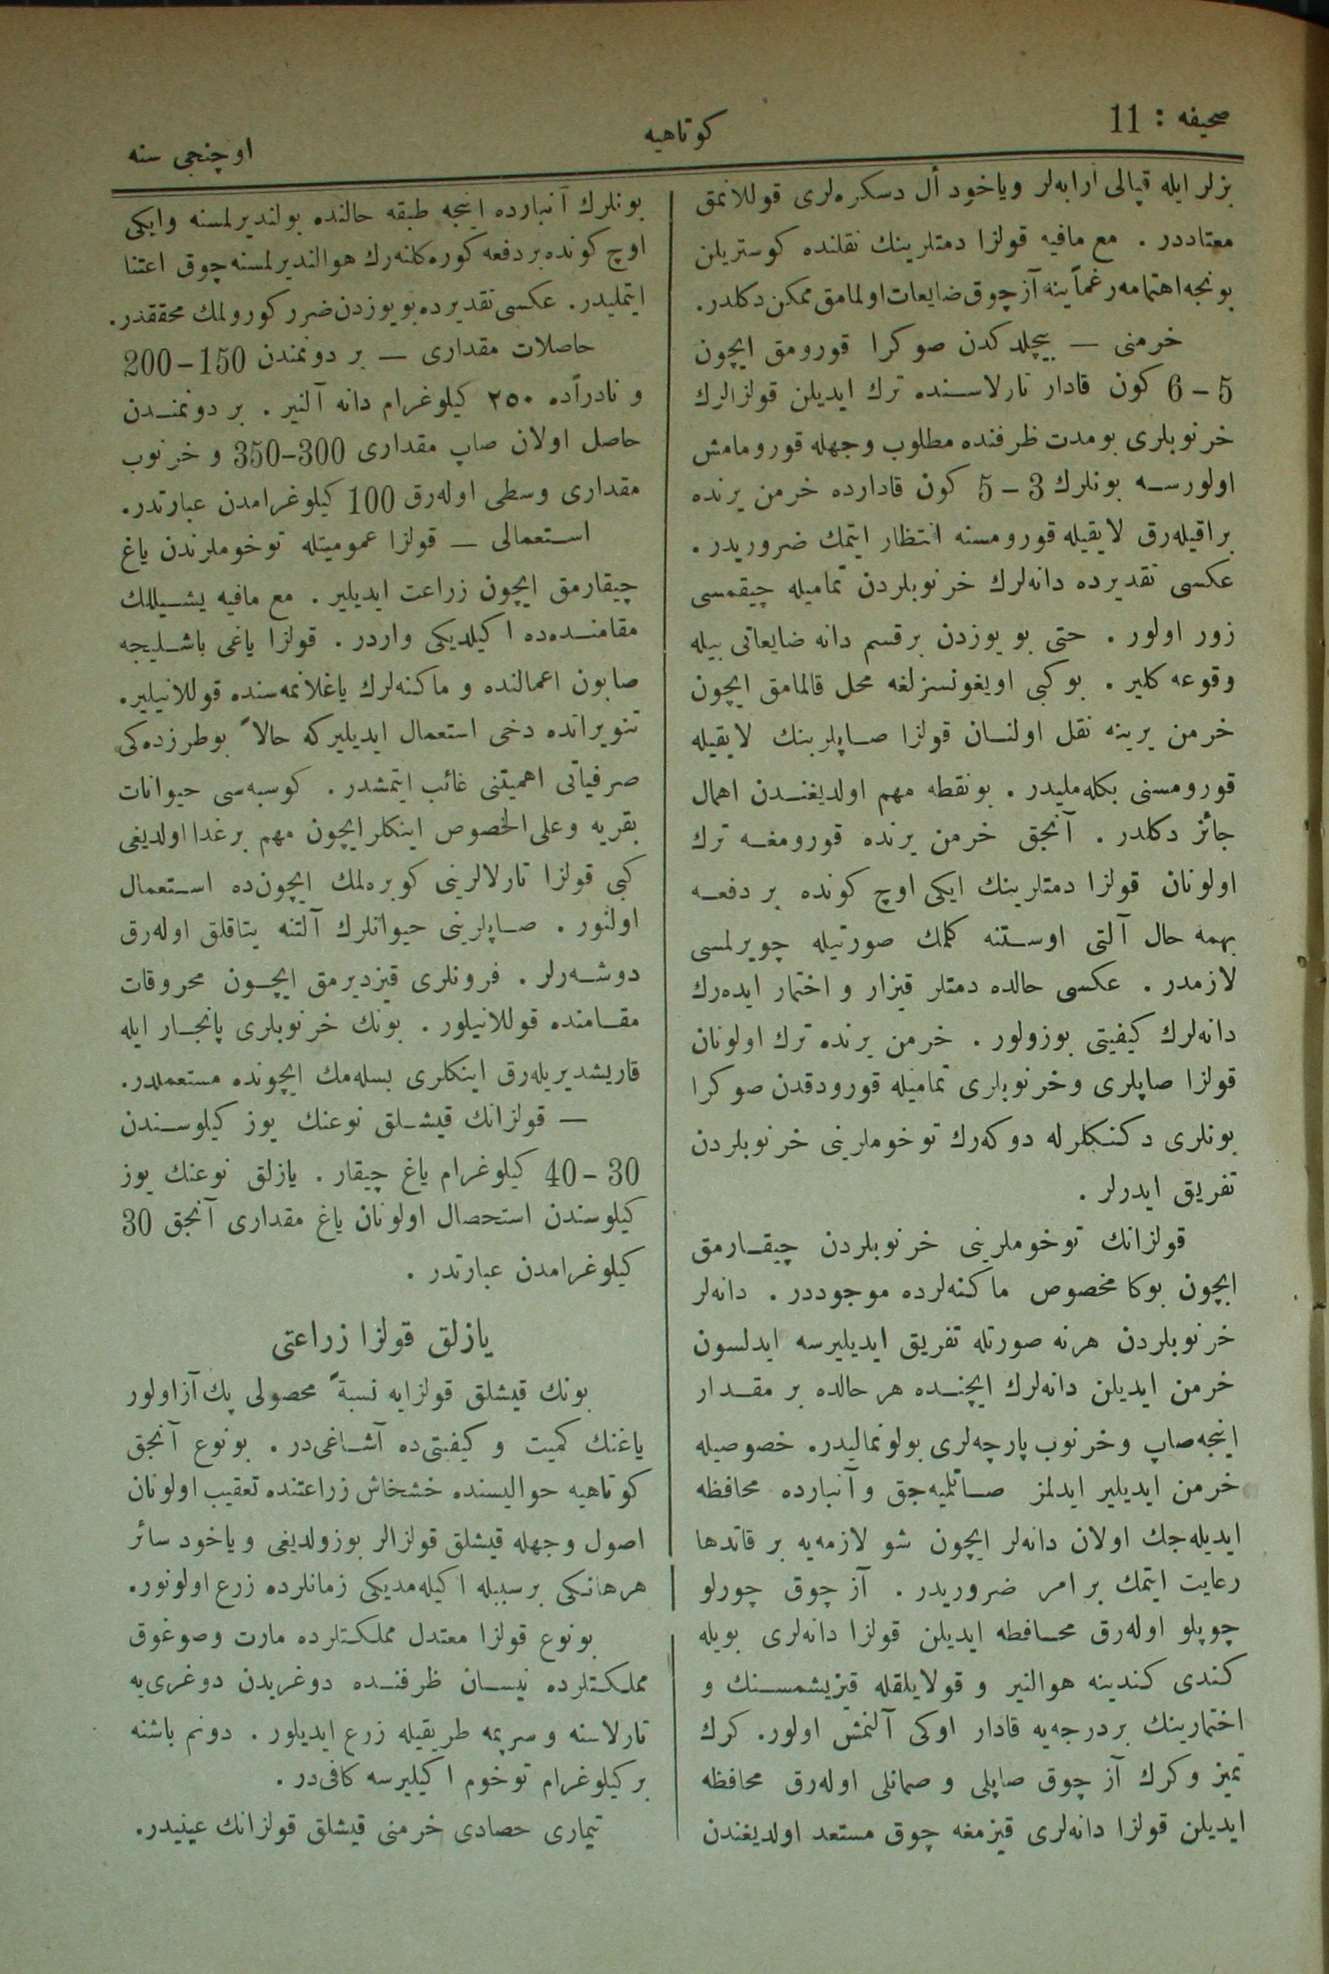 صحیفه : 11
كوتاهیه
اوچنجی سنه
بزلر ایله قپالی آرابه‌لر ویاخود أل دسكره‌لری قوللانمق
معتاددر . مع مافیه قولزا دمتلرینك نقلنده كوستریلن
بونجه اهتمامه رغماً ینه آز چوق ضایعات اولمامق ممكن دكلدر.
خرمنی — بیچلدكدن صوكرا قورومق ایچون
5 - 6 كون قادار تارلاسنده ترك ایدیلن قولزالرك
خرنوبلری بو مدت ظرفنده مطلوب وجهله قورومامش
اولورسه بونلرك 3 - 5 كون قادارده خرمن یرنده
براقیله‌رق لایقیله قورومسنه انتظار ایتمك ضروریدر .
عكسی تقدیرده دانه‌لرك خرنوبلردن تمامیله چیقمسی
زور اولور . حتی بو یوزدن بر قسم دانه ضایعاتی بیله
وقوعه كلیر . بوكبی اویغونسزلغه محل قالمامق ایچون
خرمن یرینه نقل اولنان قولزا صاپلرینك لایقیله
قورومسنی بكله‌ملیدر . بونقطه مهم اولدیغندن اهمال
جائز دكلدر . آنجق خرمن یرنده قورومغه ترك
اولونان قولزا دمتلرینك ایكی اوچ كونده بر دفعه
بهمه حال آلتی اوستنه كلمك صورتیله چویرلمسی
لازمدر . عكسی حالده دمتلر قیزار و اختمار ایده‌رك
دانه‌لرك كیفیتی بوزولور . خرمن یرنده ترك اولونان
قولزا صاپلری وخرنوبلری تمامیله قورودقدن صوكرا
بونلری دكنكلرله دوكه‌رك توخوملرینی خرنوبلردن
تفریق ایدرلر .
قولزانك توخوملرینی خرنوبلردن چیقارمق
ایچون بوكا مخصوص ماكنه‌لرده موجوددر . دانه‌لر
خرنوبلردن هرنه صورتله تفریق ایدیلیرسه ایدلسون
خرمن ایدیلن دانه‌لرك ایچنده هر حالده بر مقدار
اینجه صاپ وخرنوب پارچه‌لری بولونمالیدر. خصوصیله
خرمن ایدیلیر ایدلمز صاتلمیه‌جق و آنبارده محافظه
ایدیله‌جك اولان دانه‌لر ایچون شو لازمه‌یه بر قاتدها
رعایت ایتمك بر امر ضروریدر . آز چوق چورلو
چوپلو اوله‌رق محافظه ایدیلن قولزا دانه‌لری بویله
كندی كندینه هوالنیر و قولایلقله قیزیشمسنك و
اختمارینك بر درجه‌یه قادار اوكی آلنمش اولور. كرك
تمیز و كرك آز چوق صاپلی و صمانلی اوله‌رق محافظه
ایدیلن قولزا دانه‌لری قیزمغه چوق مستعد اولدیغندن
بونلرك آنبارده اینجه طبقه حالنده بولندیرلمسنه وایكی
اوچ كونده بر دفعه كوره‌كلنه‌رك هوالندیرلمسنه چوق اعتنا
ایتملیدر. عكسی تقدیرده بو یوزدن ضرر كورولمك محققدر.
حاصلات مقداری — بر دونمندن 150-200
و نادراًده ۲۵۰ كیلوغرام دانه آلنیر . بر دونمندن
حاصل اولان صاپ مقداری 300-350 و خرنوب
مقداری وسطی اوله‌رق 100 كیلوغرامدن عبارتدر.
استعمالی — قولزا عمومیتله توخوملرندن یاغ
چیقارمق ایچون زراعت ایدیلیر . مع مافیه یشیللك
مقامنده‌ده اكیلدیكی واردر . قولزا یاغی باشلیجه
صابون اعمالنده و ماكنه‌لرك یاغلانمه‌سنده قوللانیلیر.
تنویراتده دخی استعمال ایدیلیركه حالاً بوطرزده‌كی
صرفیاتی اهمیتنی غائب ایتمشدر . كوسبه‌سی حیوانات
بقریه وعلی الخصوص اینكلر ایچون مهم بر غدا اولدیغی
كبی قولزا تارلالرینی كوبره‌لمك ایچون‌ده استعمال
اولنور . صاپلرینی حیوانلرك آلتنه یتاقلق اوله‌رق
دوشه‌رلر . فرونلری قیزدیرمق ایچون محروقات
مقامنده قوللانیلور . بونك خرنوبلری پانجار ایله
قاریشدیریله‌رق اینكلری بسله‌مك ایچونده مستعملدر.
— قولزانك قیشلق نوعنك یوز كیلوسندن
30 - 40 كیلوغرام یاغ چیقار . یازلق نوعنك یوز
كیلوسندن استحصال اولونان یاغ مقداری آنجق 30
كیلوغرامدن عبارتدر .
یازلق قولزا زراعتی
بونك قیشلق قولزایه نسبةً محصولی پك آز اولور
یاغنك كمیت و كیفیتی‌ده آشاغی‌در . بونوع آنجق
كوتاهیه حوالیسنده خشخاش زراعتنده تعقیب اولونان
اصول وجهله قیشلق قولزالر بوزولدیغی ویاخود سائر
هرهانكی بر سببله اكیله‌مدیكی زمانلرده زرع اولونور.
بونوع قولزا معتدل مملكتلرده مارت وصوغوق
مملكتلرده نیسان ظرفنده دوغریدن دوغری‌یه
تارلاسنه و سرپمه طریقیله زرع ایدیلور . دونم باشنه
بر كیلوغرام توخوم اكیلیرسه كافی‌در .
تیماری حصادی خرمنی قیشلق قولزانك عینیدر.